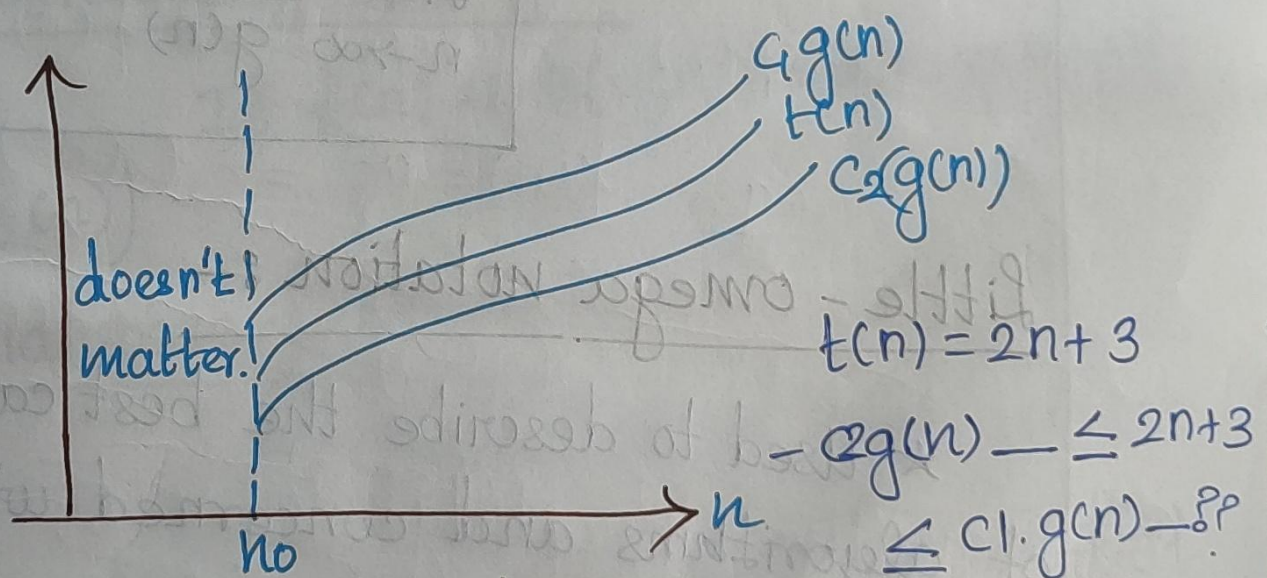 c1g(n)
t(n)
c2(g(n))
doesn't
matter.
n
no
t(n) = 2n+3
- c2g(n) — ≤ 2n+3
≤ c1.g(n) —??